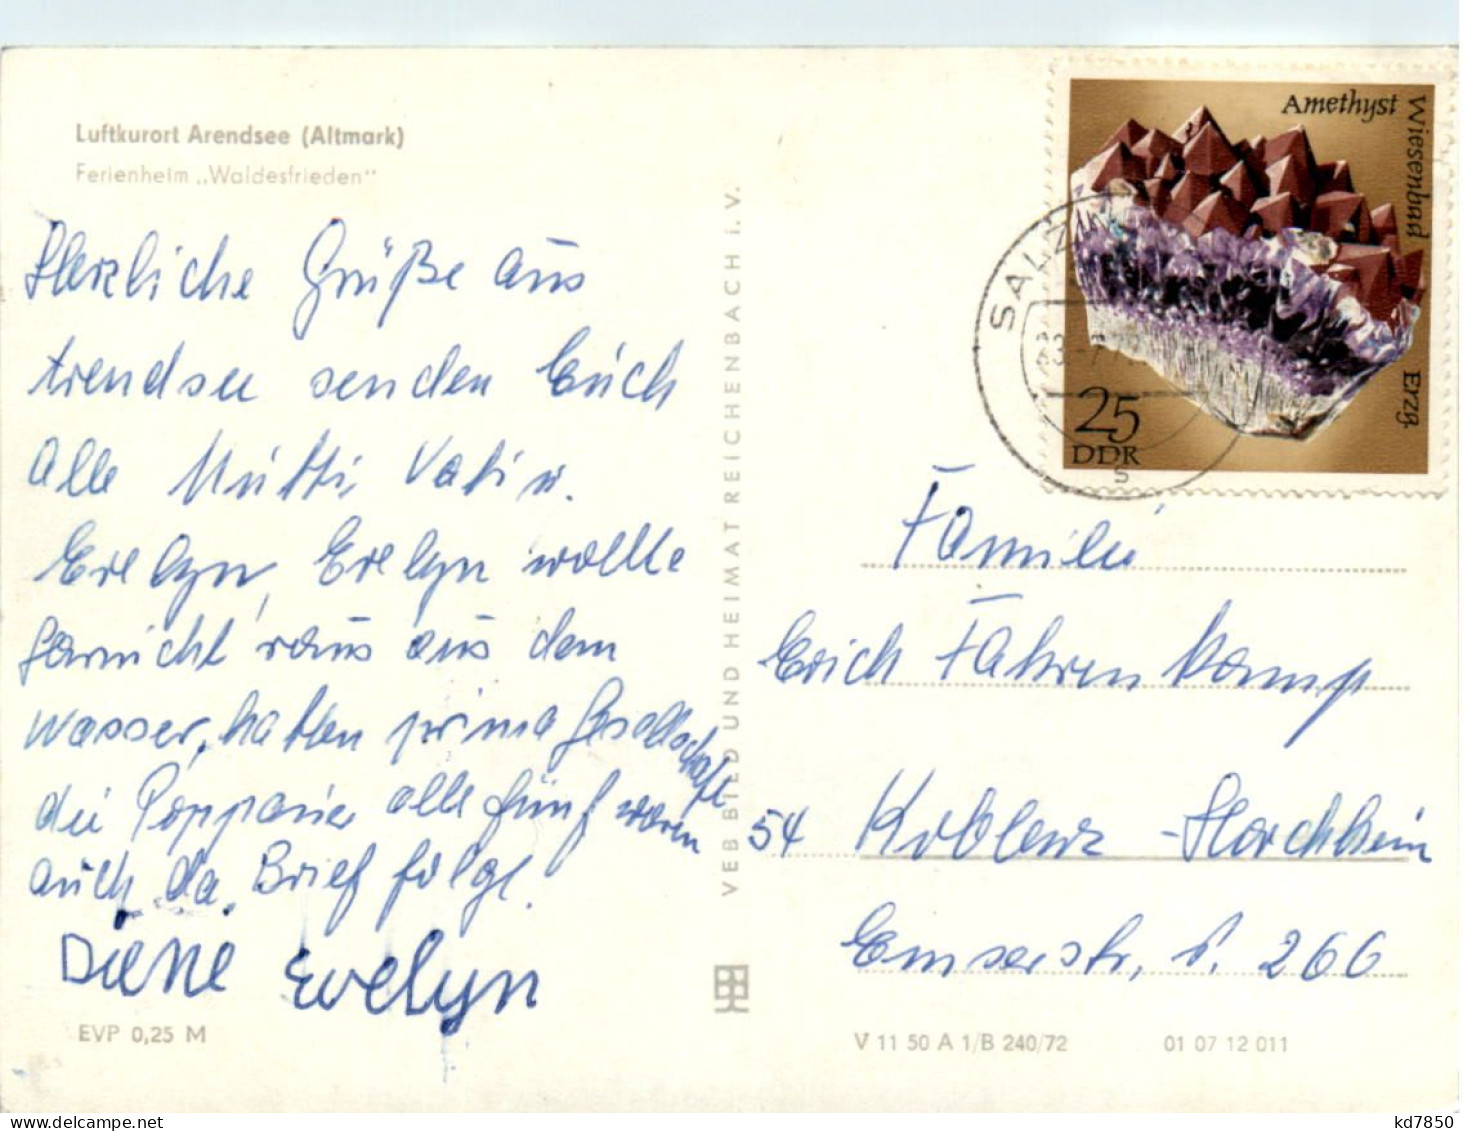 Luftkurort Arendsee (Altmark)
Ferienheim „Waldesfrieden"
Herzliche Grüße aus
Arendsee senden Euch
Alle Mutti, Vati u.
Evelyn, Evelyn wollte
garnicht raus aus dem
Wasser, hatten prima Gesellschaft
die alle fünf waren
auch da. Brief folgt.
Diene Evelyn
EVP 0,25 M
VEB BILD UND HEIMAT REICHENBACH i. V.
Amethyst
Wiesenbad
Erzg.
25
DDR
SALZ
s
Familie
Erich Fahrenkamp
54 Koblenz-Horchheim
Emserstr. 266
V 11 50 A 1/B 240/72
01 07 12 011
kd7850
delcampe.net